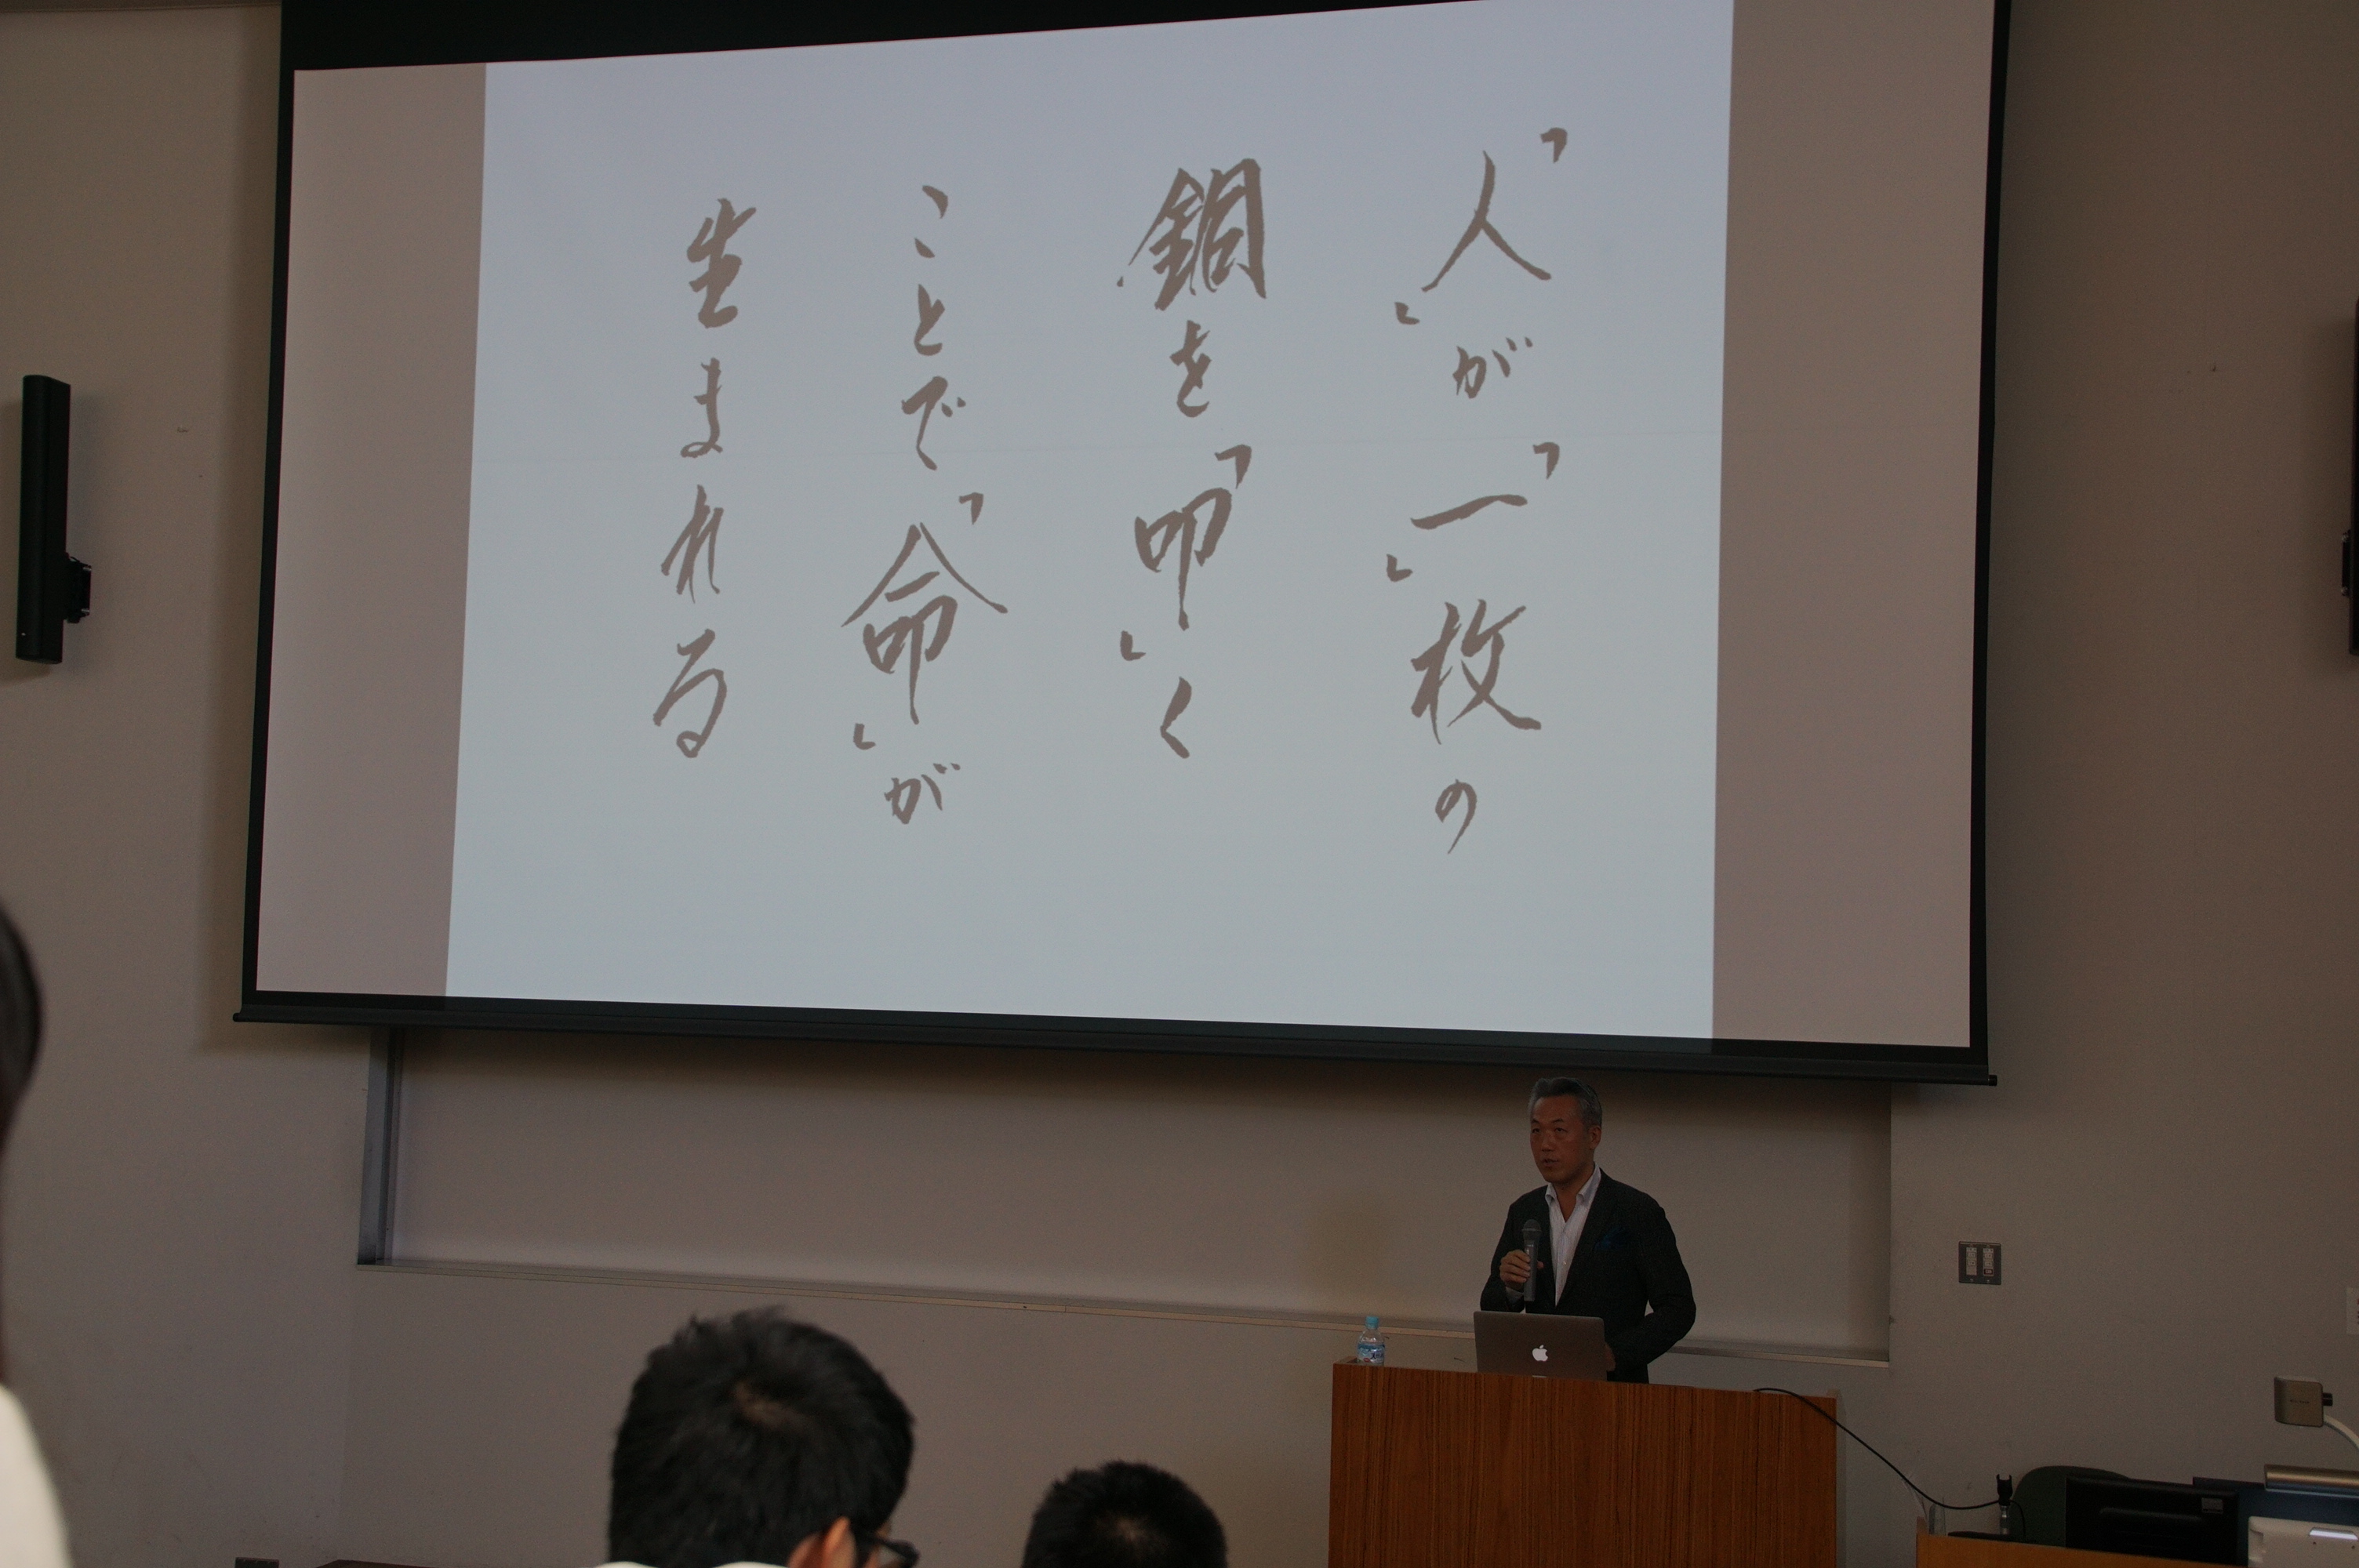 「人」が「一」枚の
銅を「叩」く
ことで「命」が
生まれる